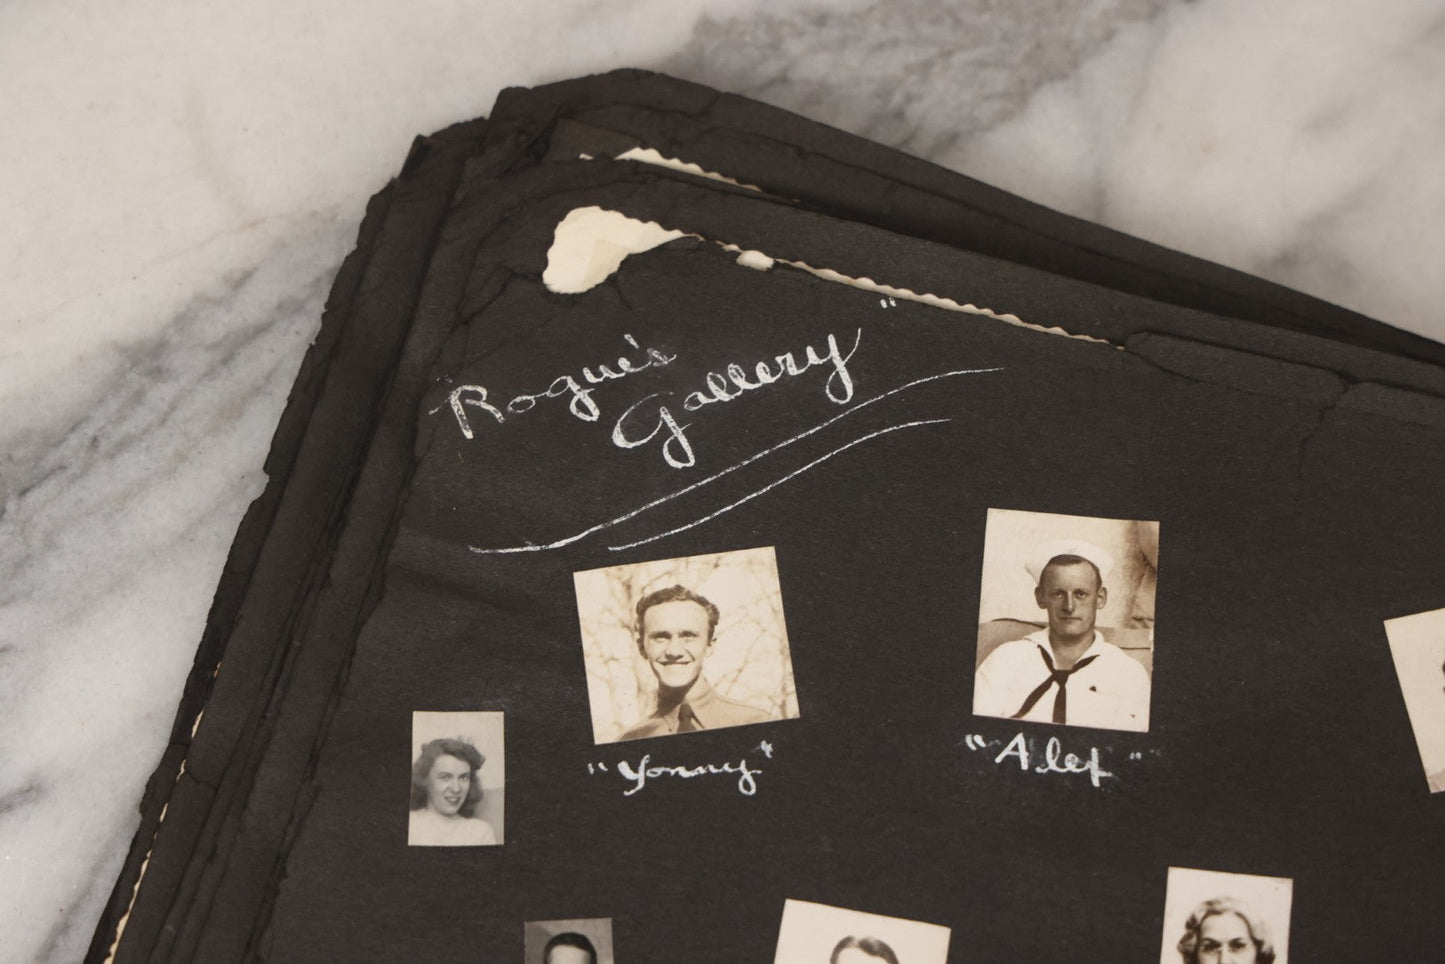 Rogue's
Gallery"
"Yonny"
"Alef"